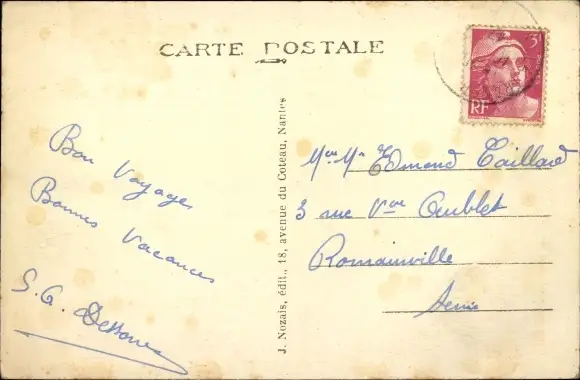 CARTE POSTALE
3F
RF
Bon Voyage
Bonnes Vacances
S.G.
J. Nozais, édit., 18, avenue du Coteau, Nantes
Edmond Taillard
3 rue Vve Aublet
Romainville
Seine